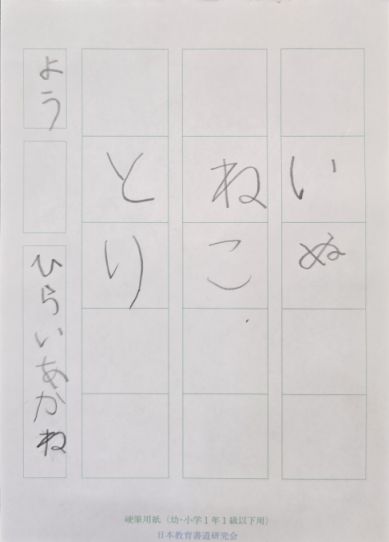 いぬ
ねこ
とり
よう
ひらいあかね
硬筆用紙（幼・小学1年1級以下用）
日本教育書道研究会